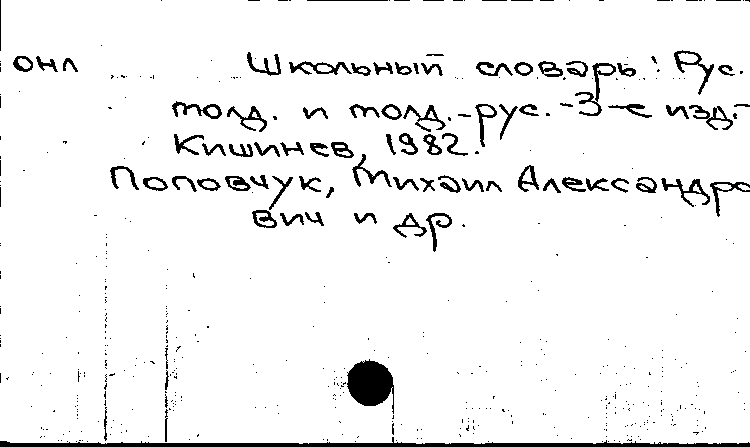 ОНЛ Школьный словарь: Рус.
молд. и молд.-рус. -3-е изд.-
Кишинев, 1982.
Поповчук, Михаил Александро
вич и др.